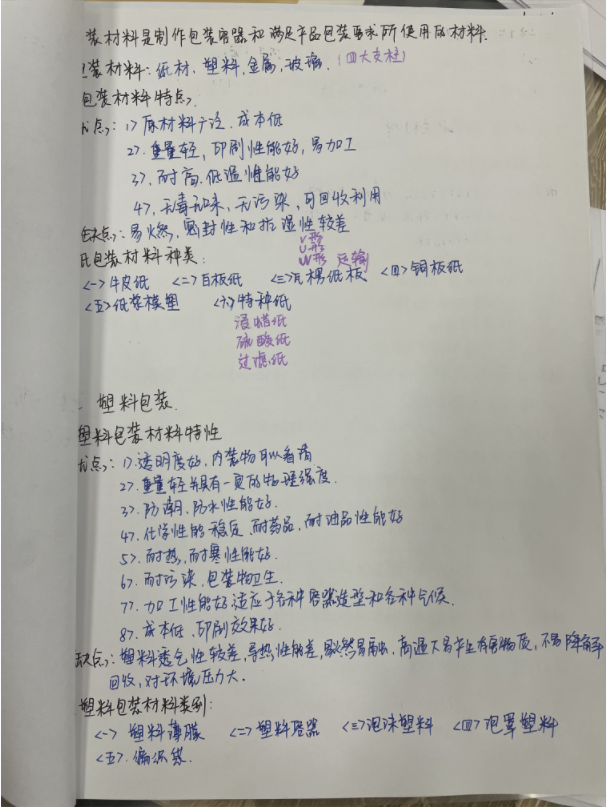 装材料是制作包装容器和满足产品包装要求所使用的材料.
装材料:纸材,塑料,金属,玻璃. (四大支柱)
包装材料特点,
优点: 1>原材料广泛.成本低
2>.重量轻,印刷性能好,易加工
3>,耐高.低温性能好
4>,无毒无味,无污染,可回收利用
缺点:易燃,密封性和抗湿性较差
氏包装材料种类:
V形
U形
UV形 运输
<一>牛皮纸 <二>白板纸 <三>瓦楞纸板 <四>铜板纸
<五>纸浆模塑 <六>特种纸
浸蜡纸
硫酸纸
过滤纸
塑料包装.
塑料包装材料特性
优点: 1>.透明度好,内装物可以看清
2>.重量轻并具有一定的物理强度.
3>.防潮.防水性能好.
4>.化学性能稳定.耐药品,耐油品性能好
5>.耐热,耐寒性能好.
6>.耐污染,包装物卫生.
7>.加工性能好适应于各种容器造型和各种气候.
8>.成本低.印刷效果好.
缺点:塑料透气性较差,导热性能差,易产生有害物质,不易降解
回收,对环境压力大.
塑料包装材料类别:
<一>塑料薄膜 <二>塑料容器 <三>泡沫塑料 <四>泡罩塑料
<五>.编织袋.